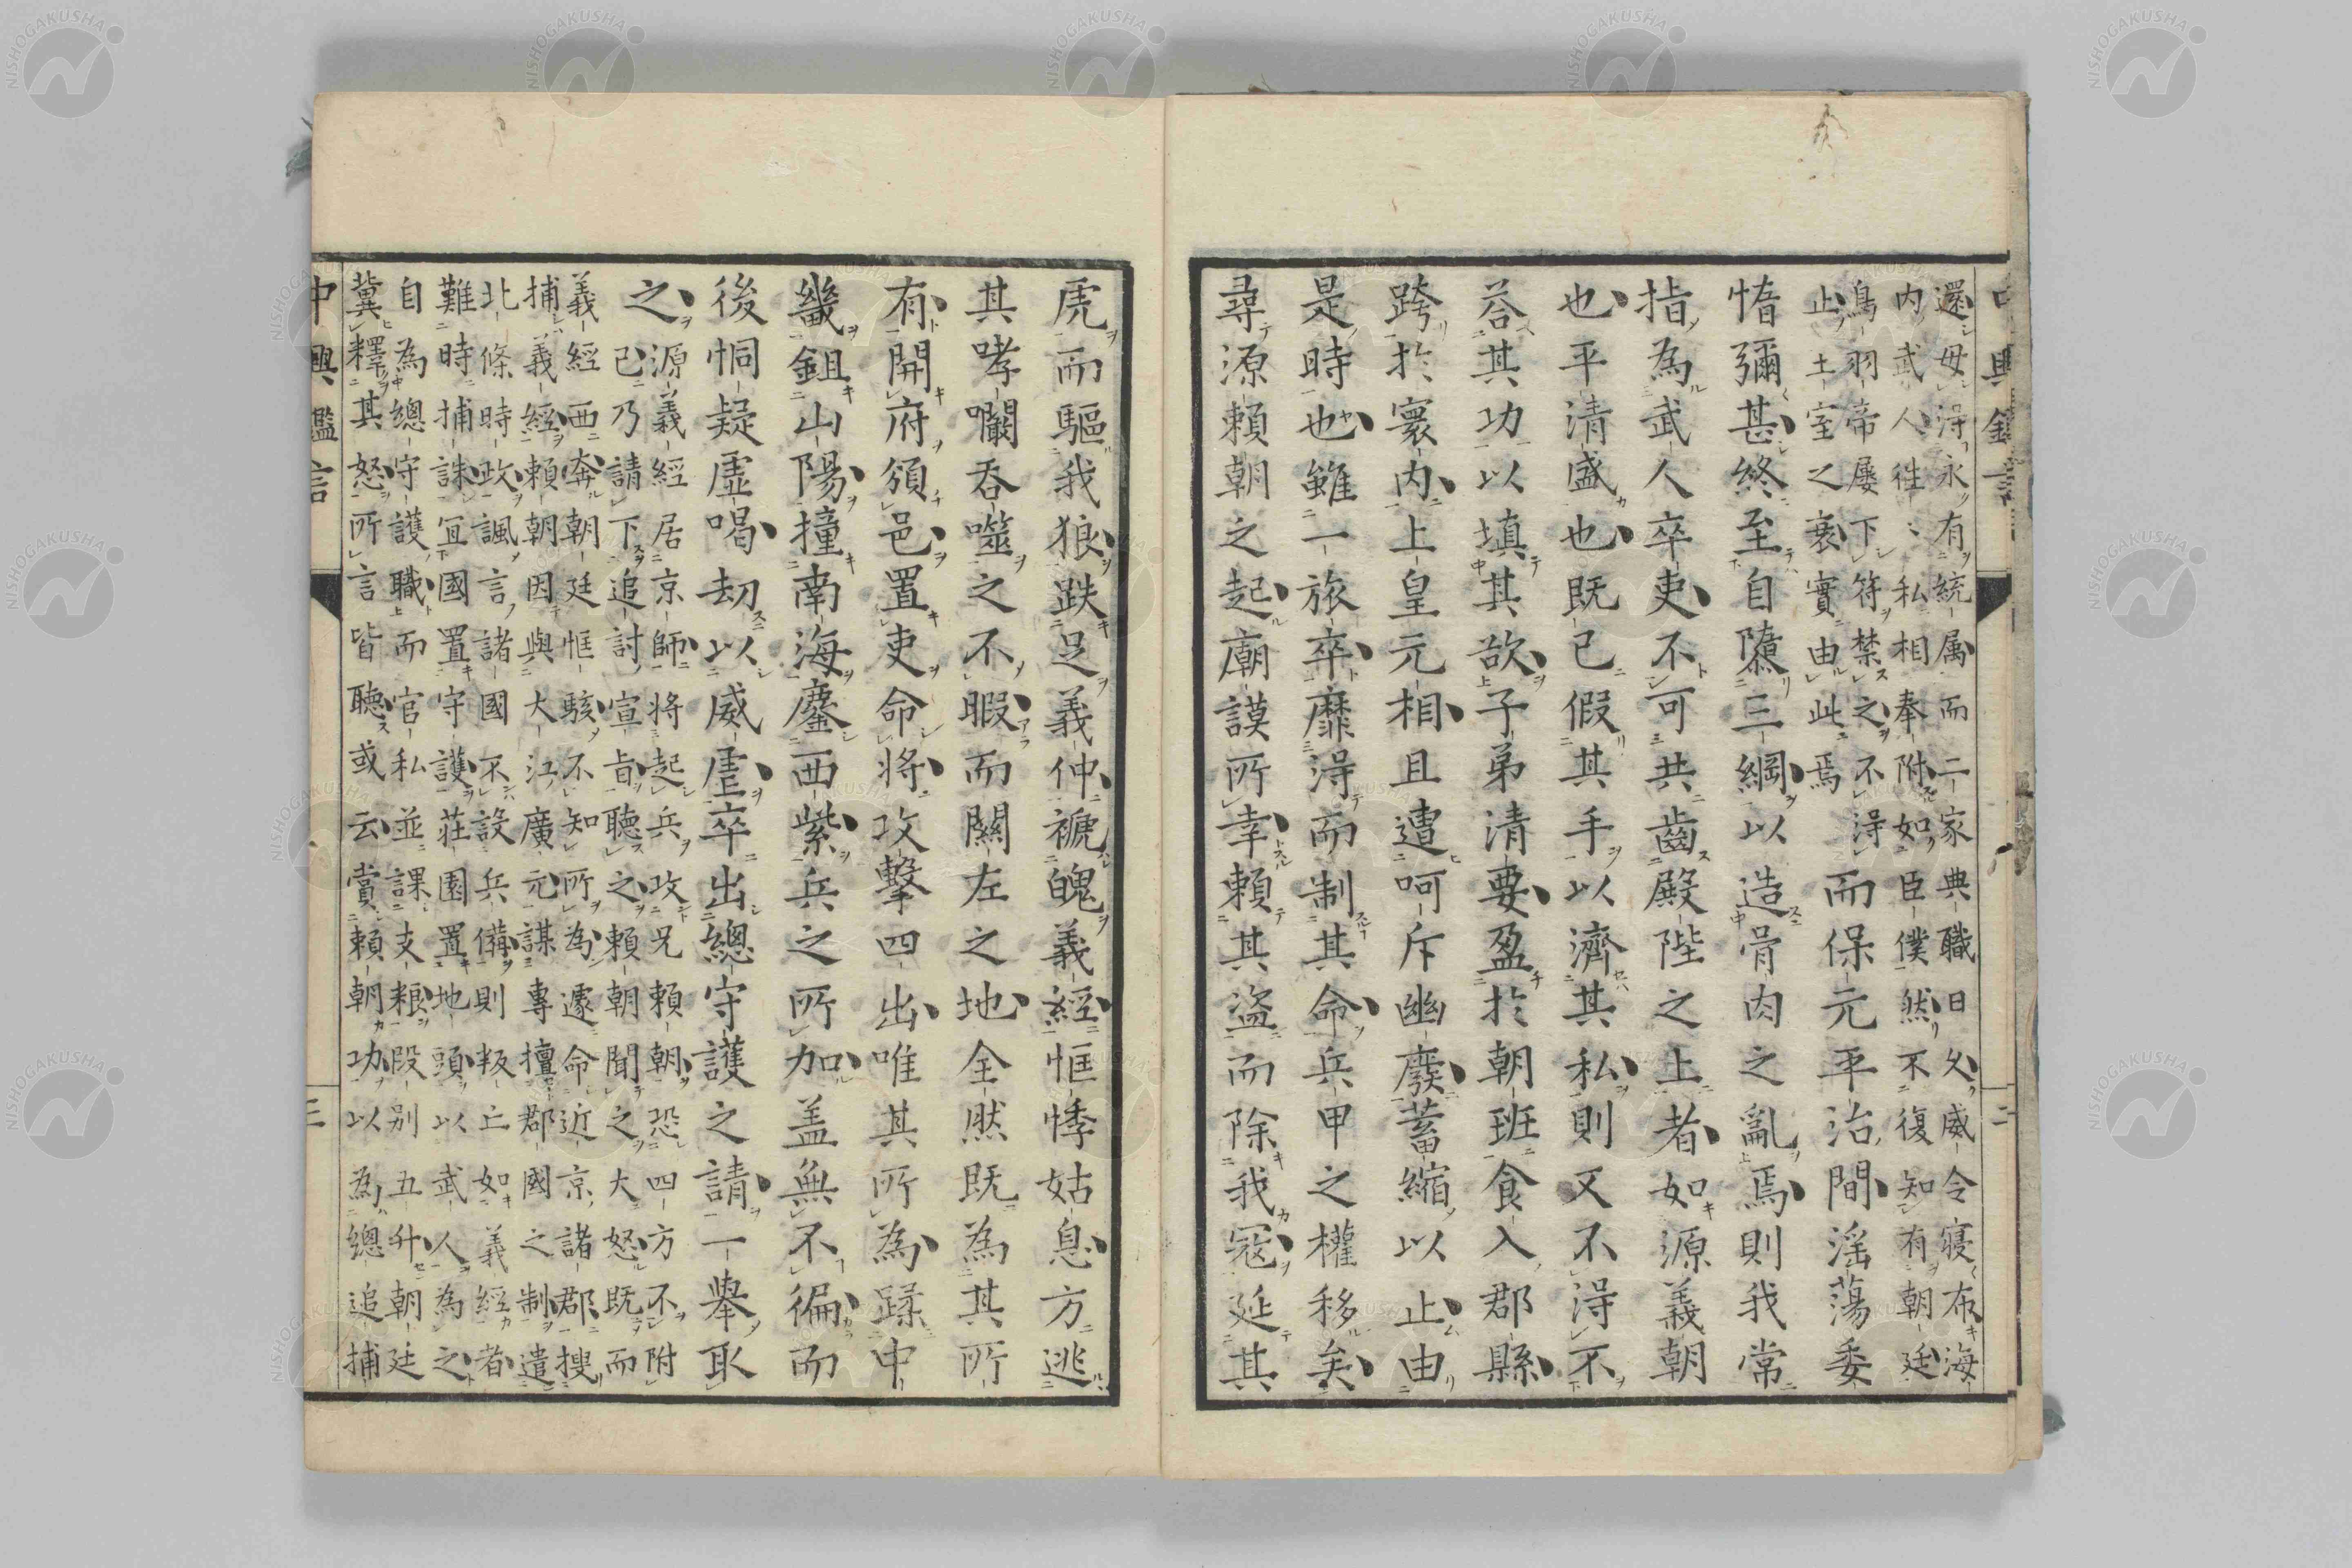 還毋淂永有統属而二家典職日久威令寢布海
内武人徃〻私相奉附如臣僕然不復知有朝廷
鳥羽帝屡下符禁之不淂
止土室之衰實由此焉
而保元平治間滛蕩委
惰彌甚終至自隳三綱以造骨肉之亂焉則我常
指為武人卒吏不可共齒殿陛之上者如源義朝
也平清盛也既已假其手以濟其私則又不淂不
荅其功以填其欲子弟清要盈於朝班食入郡縣
跨於寰内上皇元相且遭呵斥幽廢蓄縮以止由
是時也雖一旅卒靡淂而制其命兵甲之權移矣
尋源頼朝之起廟謨所幸頼其盗而除我寇延其
虎而驅我狼跌足義仲褫魄義經恇悸姑息方逃
其哮㘚呑噬之不暇而關左之地全然既為其所
有開府頒邑置吏命将攻擊四出唯其所為蹂中
畿鉏山陽撞南海鏖西紫兵之所加盖無不徧而
後恫疑虚喝刧以威虐卒出總守護之請一舉取
之
源義經居京師将起兵攻兄頼朝恐四方不附
己乃請下追討宣㫖聴之頼朝聞之大怒既而
義經西奔朝廷恇駭不知所為遽命近京諸郡搜
捕義經頼朝因與大江廣元謀專擅郡國之制遣
北條時政諷言諸國不設兵備則叛亡如義經者
難時捕誅冝國置守護荘園置地頭以武人為之
自為總守護職而官私並課支粮段别五升朝廷
冀釋其怒所言皆聴或云賞頼朝功以為總追捕
中興鑑言
二
三
NISHOGAKUSHA